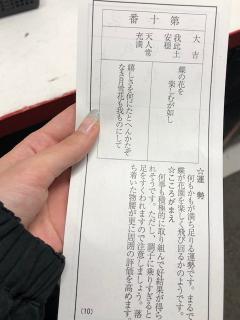 第十番
大吉
我此土
安穏
天人常
充満
蝶の花を
楽しむが如し
嬉しさを何にたとへんかたぞ
なき月雪花も我ものにして
☆運勢
何もかもが満ち足りる運勢です。まるで
蝶が花園を楽しく飛び回るかのようです。
☆こころがまえ
何事も積極的に取り組んで好結果が得ら
れそうです。ただし、調子に乗りすぎると
足をすくわれますので注意しましょう。落
ち着いた物腰が更に周囲の評価を高めます。
(10)